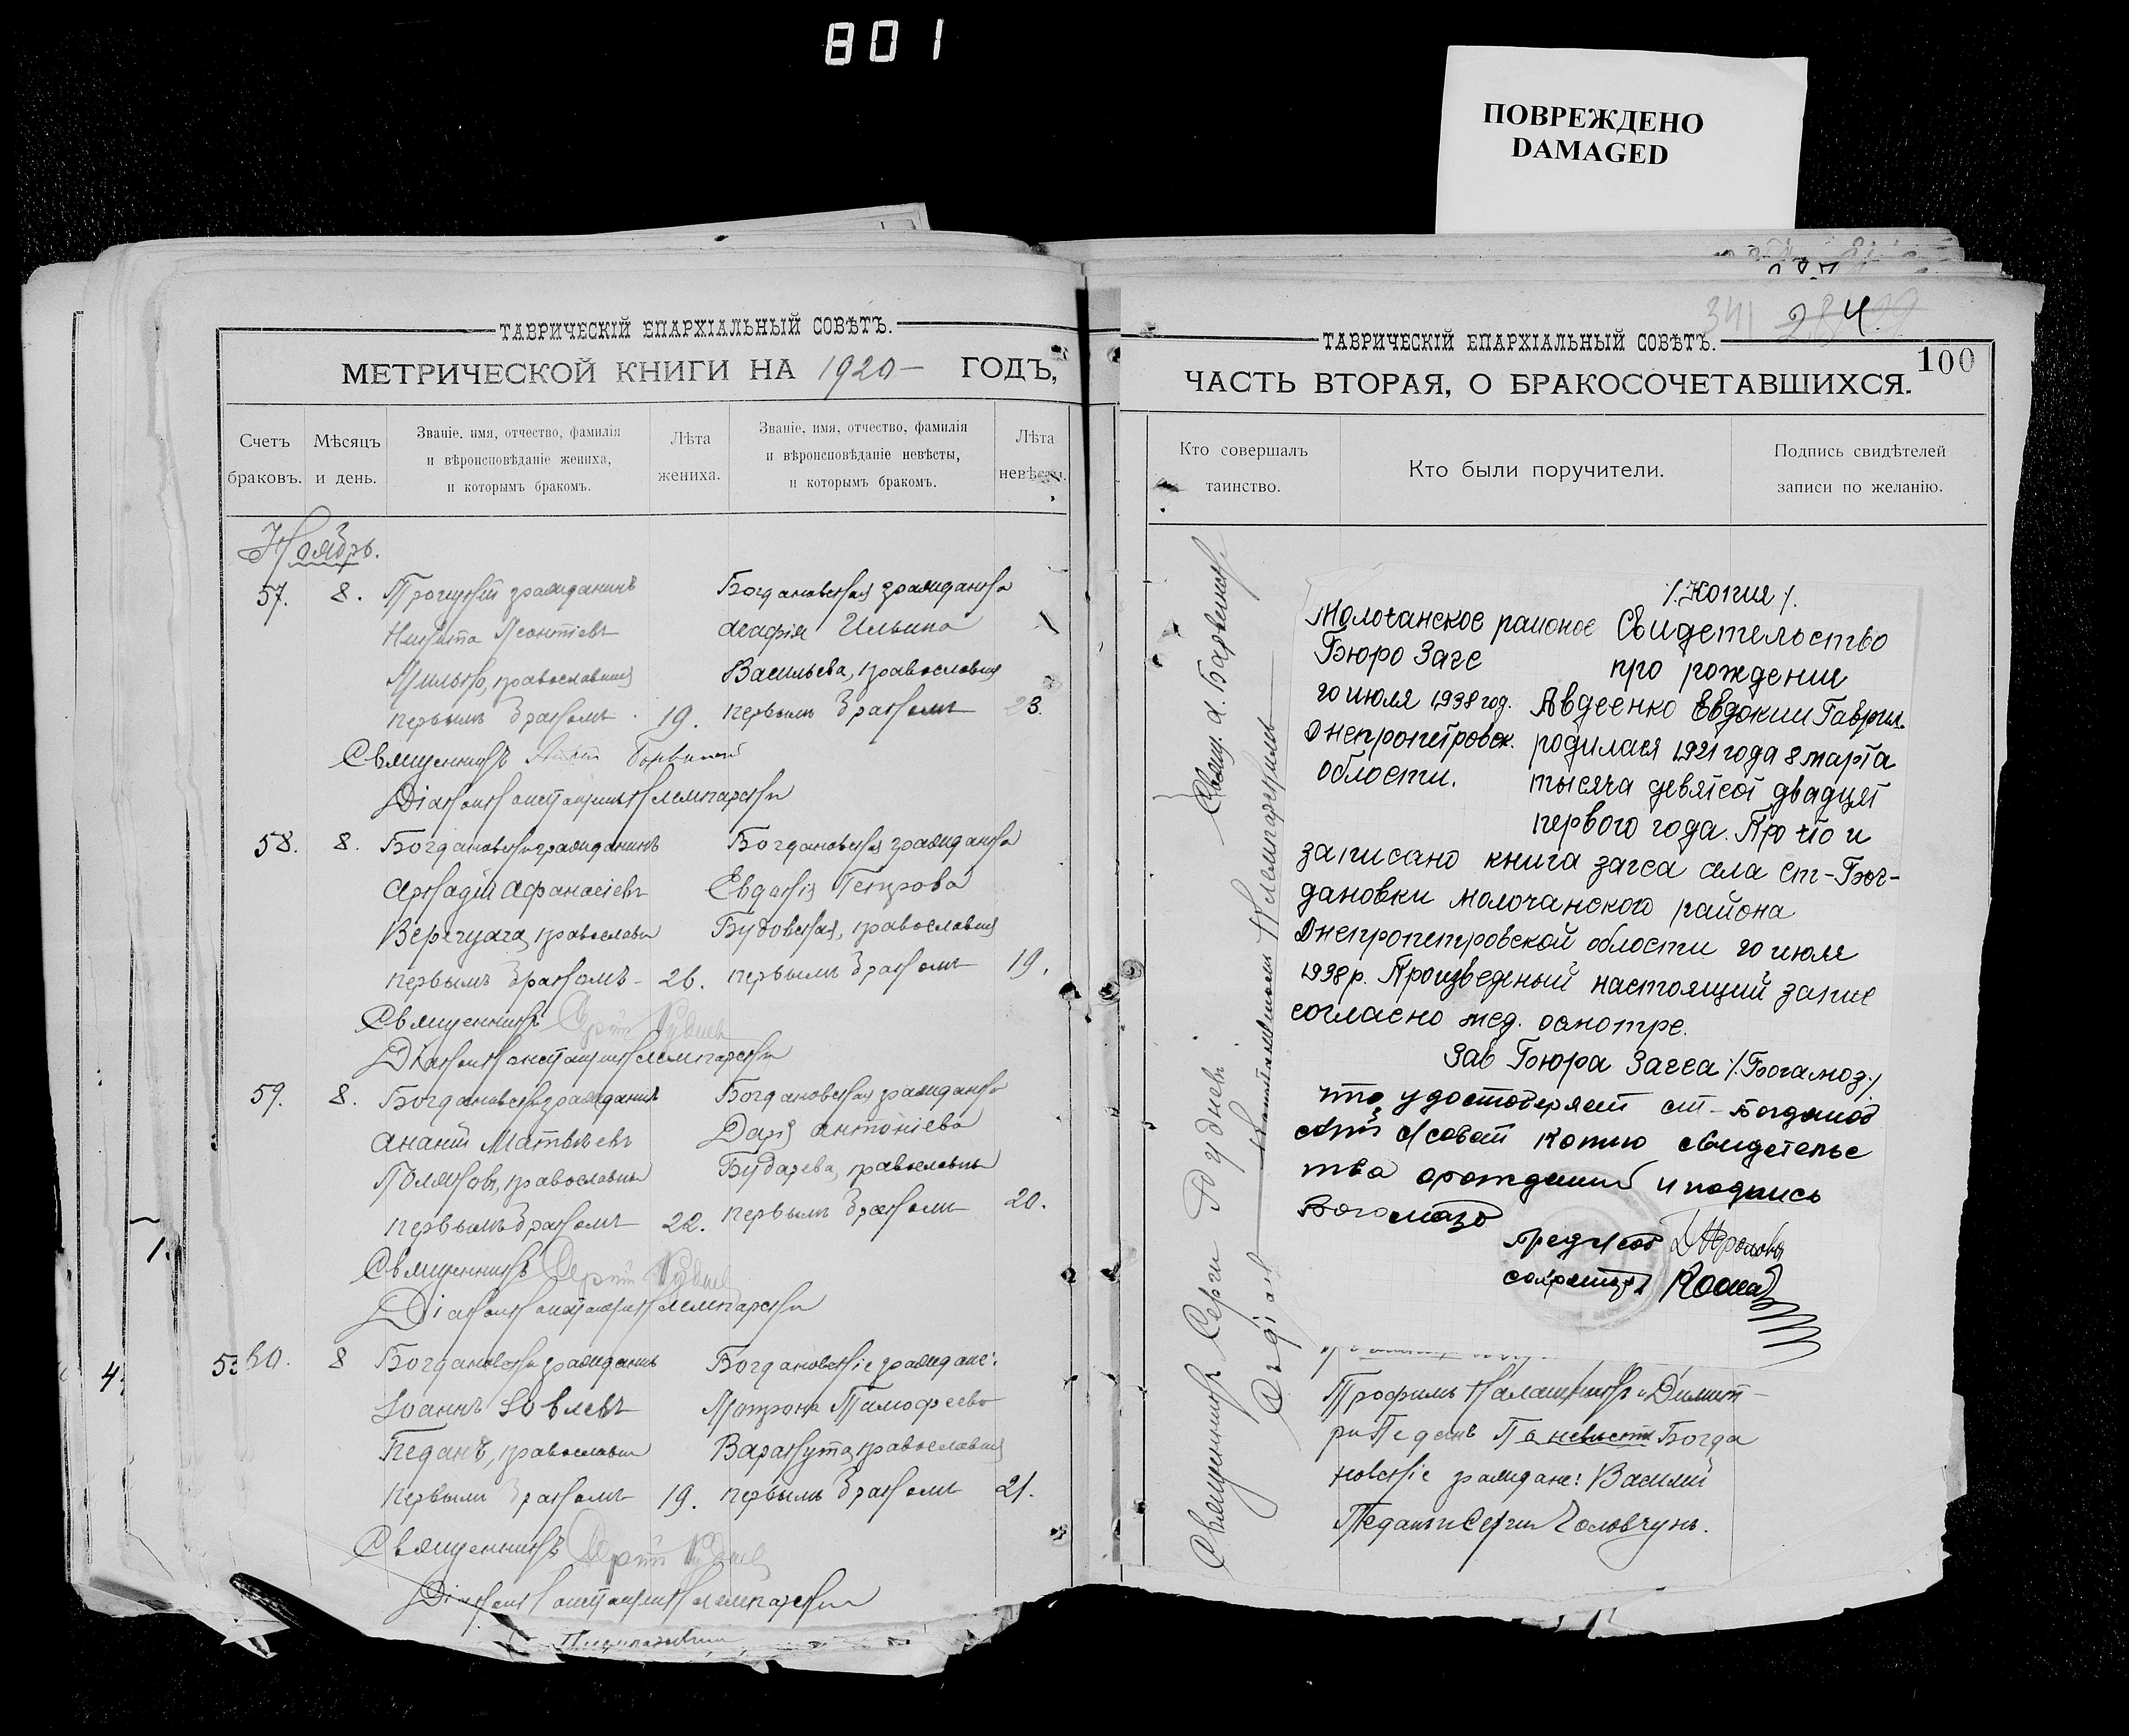 801
ПОВРЕЖДЕНО
DAMAGED
ТАВРИЧЕСКІЙ ЕПАРХІАЛЬНЫЙ СОВѢТЪ.
МЕТРИЧЕСКОЙ КНИГИ НА 1920 ГОДЪ,
Счетъ браковъ.
Мѣсяцъ и день.
Званіе, имя, отчество, фамилія
и вѣроисповѣданіе жениха,
и которымъ бракомъ.
Лѣта жениха.
Званіе, имя, отчество, фамилія
и вѣроисповѣданіе невѣсты,
и которымъ бракомъ.
Лѣта невѣсты.
Ноябрь.
57. 8. гражданинъ Богдановская гражданка
Никита Леонтіевъ Агафія Ильина
православный Васильева, православная
первымъ бракомъ 19. первымъ бракомъ 23.
Священникъ
Діаконъ
58. 8. Богдановскій гражданинъ Богдановская гражданка
Аркадій Афанасіевъ Евдокія Петрова
православный Будовская, православная
первымъ бракомъ 26. первымъ бракомъ 19.
Священникъ Сергій Руднев
Діаконъ
59. 8. Богдановскій гражданинъ Богдановская гражданка
Ананій Матвѣевъ Дарія Антоніева
Поляковъ, православный Бударева, православная
первымъ бракомъ 22. первымъ бракомъ 20.
Священникъ Сергій Руднев
Діаконъ
60. 8 Богдановскій гражданинъ Богдановскіе граждане:
Іоаннъ Іовлевъ Матрона Тимофеева
Педанъ, православный Варакута, православная
первымъ бракомъ 19. первымъ бракомъ 21.
Священникъ Сергій Руднев
Діаконъ
341 4.
ТАВРИЧЕСКІЙ ЕПАРХІАЛЬНЫЙ СОВѢТЪ.
100
ЧАСТЬ ВТОРАЯ, О БРАКОСОЧЕТАВШИХСЯ.
Кто совершалъ таинство.
Кто были поручители.
Подпись свидѣтелей
записи по желанію.
Священникъ Сергій Рудневъ
/.Копия/.
Молочанское районое
Бюро Загс
20 июля 1938 год.
Днепропетровск.
области.
Свидетельство
про рождении
Авдеенко Евдокии Гаврил.
родилася 1921 года 8 марта
тысяча девятсот двадцят
первого года. Про что и
записано книга загса села Ст-Бог-
дановки Молочанского района
Днепропетровской области 20 июля
1938 р. Произведеный настоящий запис
согласно мед. осмотре.
Зав Бюра Загса /.Богамоз./
что удостоверяет ст-Богданов
совет копию свидетельс
тва о рождении и подпись
Богомаз
пред с/сов
секретарь
Трофимъ Калашникъ и Димит-
рій Педанъ По невестѣ Богда
новскіе граждане: Василій
Педанъ и Сергій Головчунъ.